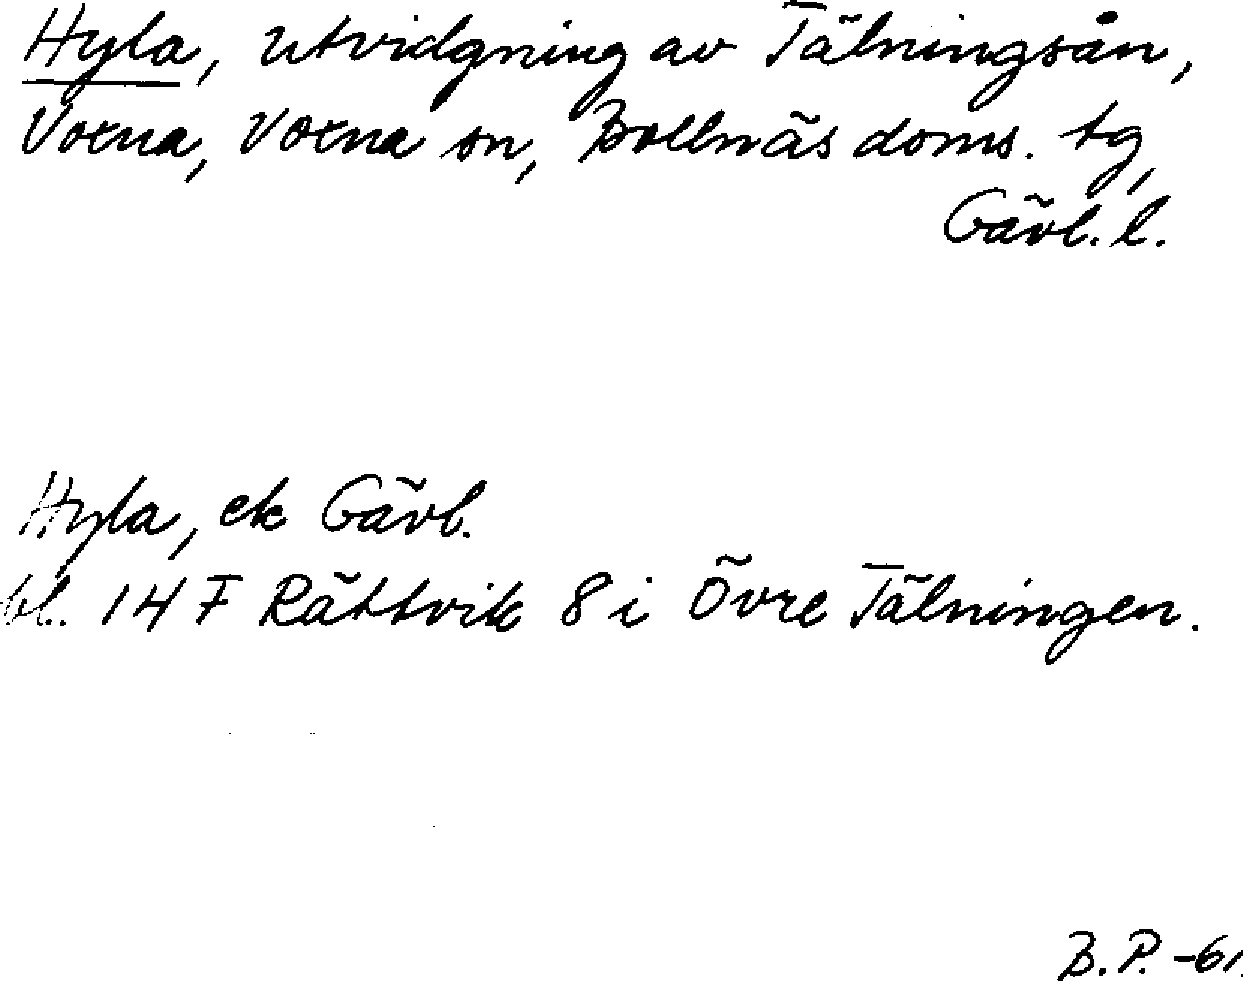 Hyla, utvidgning av Tälningsån,
Voxna, Voxna sn, Bollnäs doms. tg,
Gävl. l.
Hyla, ek Gävl.
bl. 14 F Rättvik 8 i Övre Tälningen.
B. P. -61.